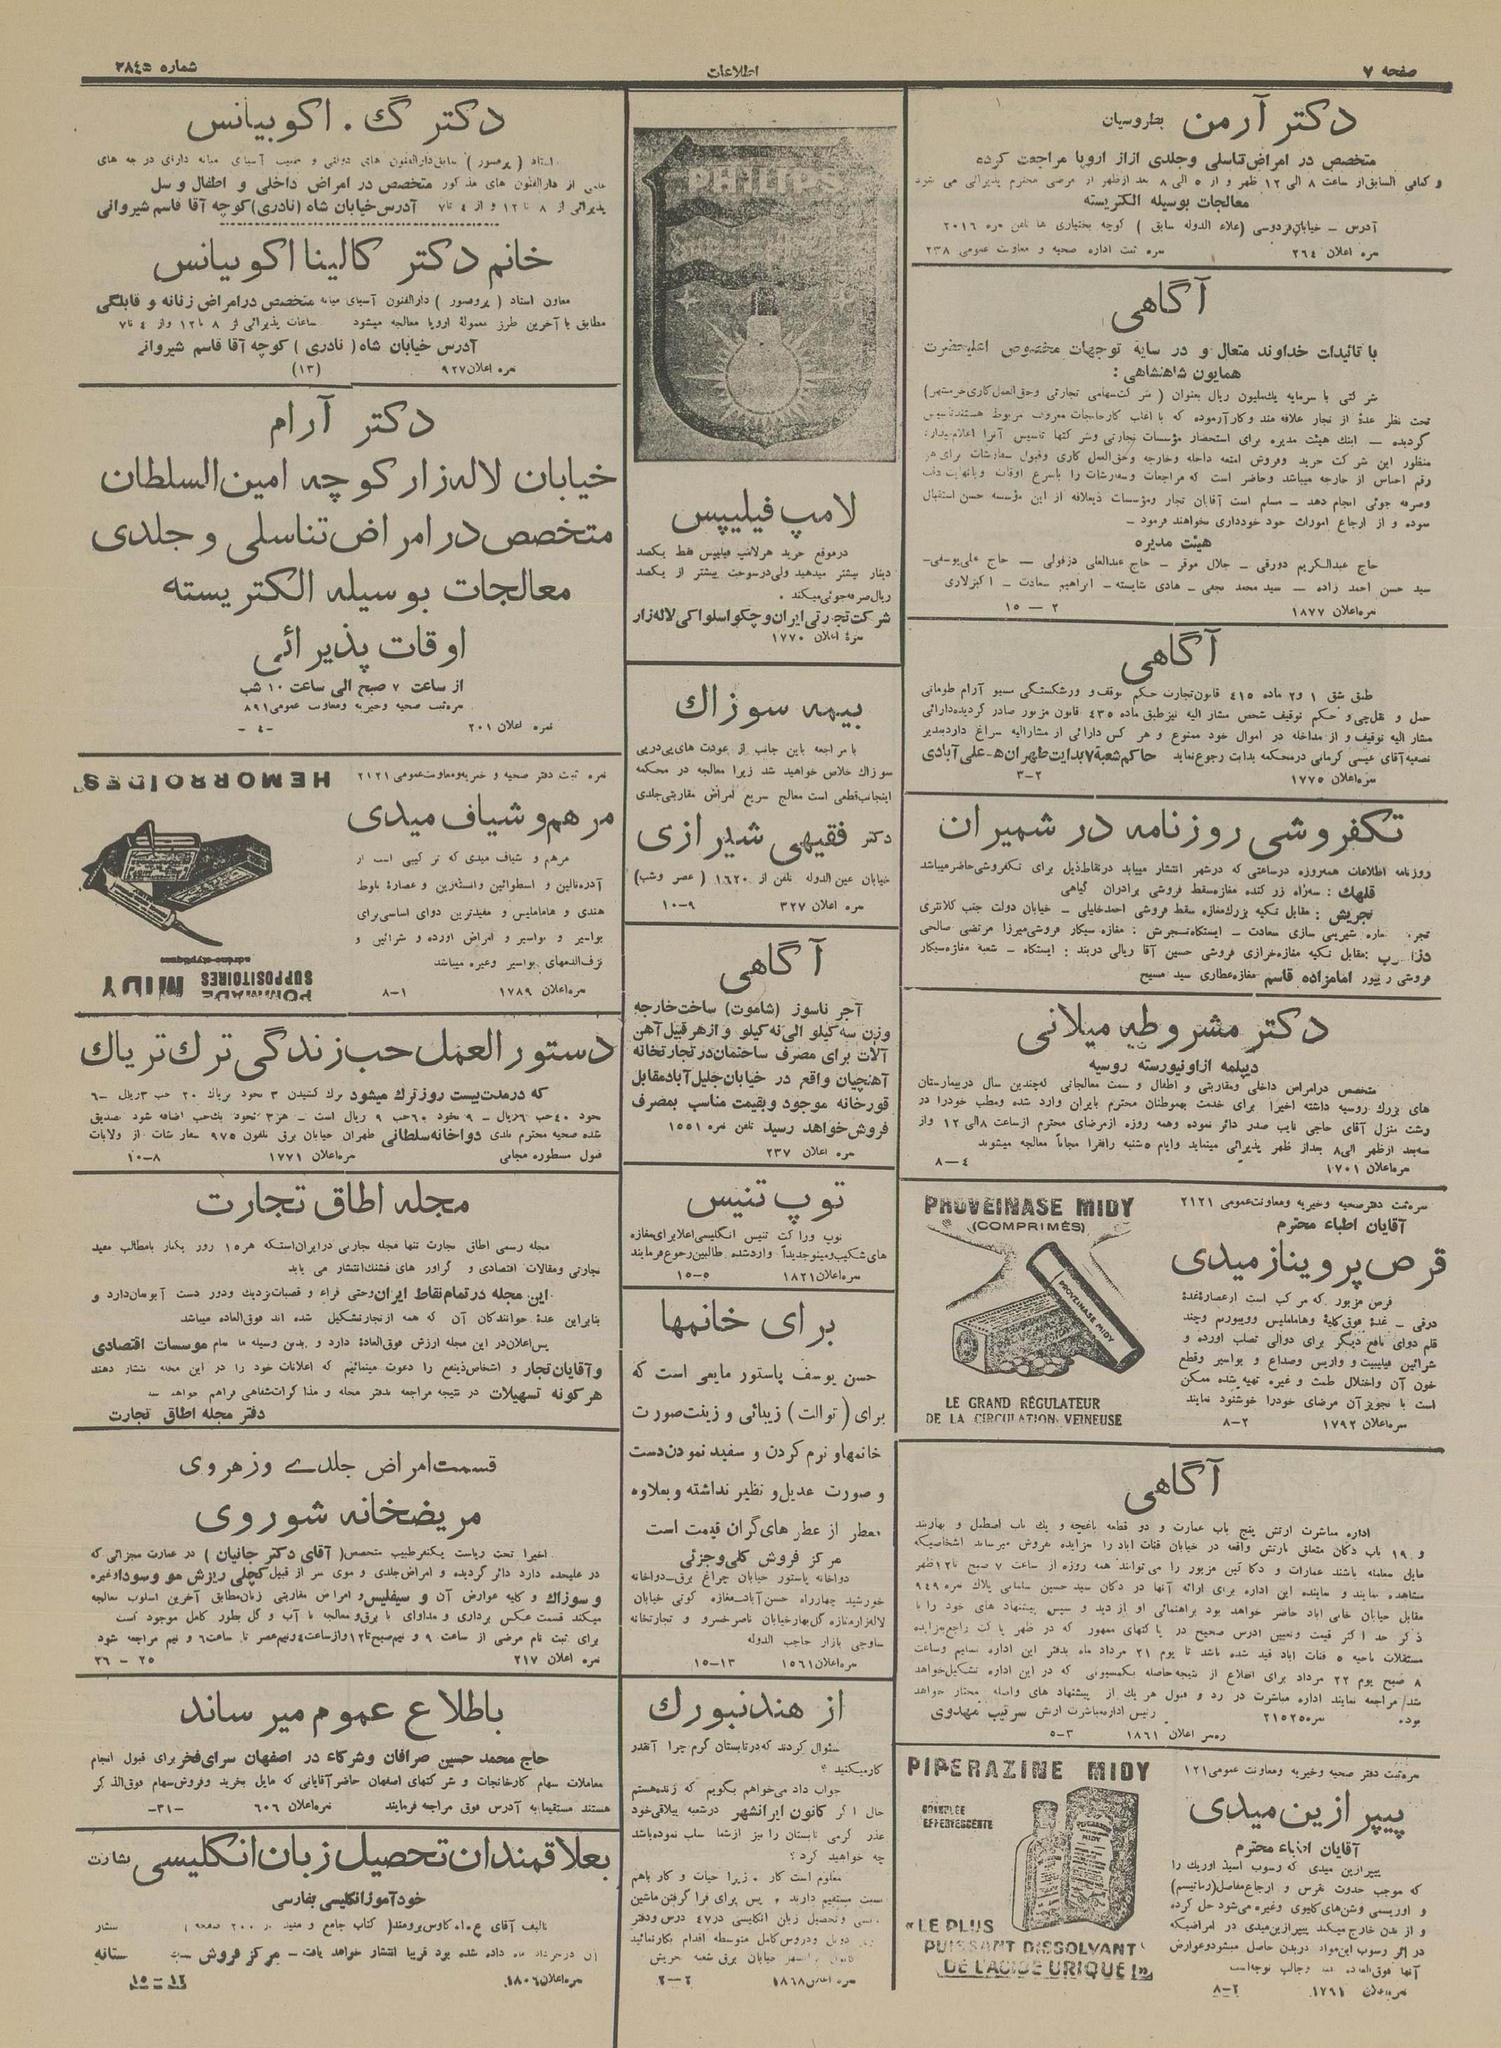 صفحه ۷
اطلاعات
شماره ۳۸۴۵
دکتر آرمن بطروسیان
متخصص در امراض تناسلی و جلدی ازاز اروپا مراجعت کرده
و کمافی السابق از ساعت ۸ الی ۱۲ ظهر و از ۵ الی ۸ بعد ازظهر از مرضی محترم پذیرائی می شود
معالجات بوسیله الکتریسته
آدرس – خیابان فردوسی (علاء الدوله سابق) کوچه بختیاری ها تلفن نمره ۲۰۱۶
نمره اعلان ۲۶۴ نمره ثبت اداره صحیه و معاونت عمومی ۲۳۸
آگاهی
با تائیدات خداوند متعال و در سایه توجهات مخصوص اعلیحضرت
همایون شاهنشاهی :
شرکتی با سرمایه یک میلیون ریال بعنوان (شرکت سهامی تجارتی وحق العمل کاری خرمشهر)
تحت نظر عدهٔ از تجار علاقه مند وکارآزموده که با اغلب کارخانجات معروف مربوط هستند تاسیس
گردیده – اینک هیئت مدیره برای استحضار مؤسسات تجارتی وشرکتها تاسیس آنرا اعلام میدارد
منظور این شرکت خرید وفروش امتعه داخله وخارجه وحق العمل کاری وقبول سفارشات برای هر
رقم اجناس از خارجه میباشد وحاضر است که مراجعات وسفارشات را باسرع اوقات وبانهایت دقت
وصرفه جوئی انجام دهد – مسلم است آقایان تجار ومؤسسات ذیعلاقه از این مؤسسه حسن استقبال
نموده و از ارجاع امورات خود خودداری نخواهند فرمود –
هیئت مدیره
حاج عبدالکریم دورقی – جلال موقر – حاج عبدالعلی دزفولی – حاج علی یوسفی –
سید حسن احمد زاده – سید محمد نجفی – هادی شایسته – ابراهیم سعادت – اکبر لاری
نمره اعلان ۱۸۷۷ ۲ – ۱۵
آگاهی
طبق شق ۱ و ۲ ماده ۴۱۵ قانون تجارت حکم توقف و ورشکستگی مسیو آرام طومانی
حمل و نقل چی و حکم توقیف شخص مشار الیه نیز طبق ماده ۴۳۵ قانون مزبور صادر گردیده دارائی
مشار الیه توقیف و از مداخله در اموال خود ممنوع و هر کس دارائی از مشارالیه سراغ دارد بمدیر
تصفیه آقای عیسی کرمانی در محکمه بدایت رجوع نماید حاکم شعبهٔ ۷ بدایت طهران ه – علی آبادی
نمره اعلان ۱۷۷۵ ۲–۳
تکفروشی روزنامه در شمیران
روزنامه اطلاعات همه روزه در ساعتی که در شهر انتشار مییابد در نقاط ذیل برای تکفروشی حاضر میباشد
قلهک : سه راه زر کنده مغازه سقط فروشی برادران گیاهی
تجریش : مقابل تکیه بزرگ مغازه سقط فروشی احمد خلیلی – خیابان دولت جنب کلانتری
شیرینی سازی سعادت – ایستگاه تجریش : مغازه سیگار فروشی میرزا مرتضی صالحی
مقابل تکیه مغازه خرازی فروشی حسین آقا ریالی دربند : ایستگاه – شعبه مغازه سیگار
فروشی امامزاده قاسم مغازه عطاری سید مسیح
دکتر مشروطه میلانی
دیپلمه از اونیورسته روسیه
متخصص در امراض داخلی ومقاربتی و اطفال و سمت معالجاتی که چندین سال در بیمارستان
های بزرگ روسیه داشته اخیرا برای خدمت بهموطنان محترم بایران وارد شده ومطب خود را در
رشت منزل آقای حاجی نایب صدر دائر نموده وهمه روزه از مرضای محترم از ساعت ۸ الی ۱۲ واز
سه بعد از ظهر الی ۸ بعد از ظهر پذیرائی مینماید و ایام ۵ شنبه را فقرا مجاناً معالجه میشوند
نمره اعلان ۱۷۰۱ ۴ – ۸
PROVEINASE MIDY
(COMPRIMÉS)
PROVEINASE MIDY
LE GRAND RÉGULATEUR
DE LA CIRCULATION VEINEUSE
نمره ثبت دفتر صحیه و خیریه و معاونت عمومی ۲۱۲۱
آقایان اطباء محترم
قرص پرویناز میدی
قرص مزبور که مرکب است از عصارهٔ غدهٔ
درقی – غدهٔ فوق کلیهٔ وهاماملیس وویبورنم وچند
قلم دوای نافع دیگر برای دوالی تصلب آورده و
شرائین فیلیبیت و واریس وصداع و بواسیر وقطع
خون آن واختلال طمث و غیره تهیه شده ممکن
است با تجویز آن مرضای خود را خوشنود نمایند
نمره اعلان ۱۷۹۲ ۲–۸
آگاهی
اداره مباشرت ارتش پنج باب عمارت و دو قطعه باغچه و یک باب اصطبل و بهاربند
و ۱۹ باب دکان متعلق بارتش واقعه در خیابان قنات آباد را بمزایده بفروش میرساند اشخاصیکه
مایل معامله باشند عمارات و دکاکین مزبور را می توانند همه روزه از ساعت ۷ صبح تا ۱۲ ظهر
مشاهده نمایند و نماینده این اداره برای ارائه آنها در دکان سید حسین سلمانی پلاک نمره ۹۴۹
مقابل خیابان خانی آباد حاضر خواهد بود براهنمائی او از دید و سپس پیشنهاد های خود را با
ذکر حد اکثر قیمت وتعیین آدرس صحیح در پاکتهای ممهور که در ظهر پاکت راجع بمزایده
مستغلات ناحیه ۵ قنات آباد قید شده باشد تا یوم ۲۱ مرداد ماه بدفتر این اداره تسلیم وساعت
۸ صبح یوم ۲۲ مرداد برای اطلاع از نتیجه حاصله بکمسیونی که در این اداره تشکیل خواهد
شد مراجعه نمایند اداره مباشرت در رد و قبول هر یک از پیشنهاد های واصله مختار خواهد
بود. نمره ۲۱۵۲۵ رئیس اداره مباشرت ارتش سرتیپ مهدوی
نمره اعلان ۱۸۶۱ ۳–۵
PIPERAZINE MIDY
GRANULÉE
EFFERVESCENTE
« LE PLUS
PUISSANT DISSOLVANT
DE L'ACIDE URIQUE ! »
نمره ثبت دفتر صحیه وخیریه و معاونت عمومی ۱۲۱
پیپرازین میدی
آقایان اطباء محترم
پیپرازین میدی که رسوب اسید اوریک را
که موجب حدوث نقرس و اوجاع مفاصل (رماتیسم)
و اوریسمی وشن های کلیوی وغیره می شود حل کرده
و از بدن خارج میکند پیپرازین میدی در امراضیکه
در اثر رسوب این مواد در بدن حاصل میشود وعوارض
آنها فوق العاده وجالب توجه است
۱۷۶۱ ۲–۸
PHILIPS
لامپ فیلیپس
در موقع خرید هر لامپ فیلیپس فقط یکصد
دینار بیشتر میدهید ولی در سوخت بیشتر از یکصد
ریال صرفه جوئی میکند .
شرکت تجارتی ایران و چکواسلواکی لاله زار
نمره اعلان ۱۷۷۰
بیمه سوزاک
با مراجعه باین جانب از عودت های پی در پی
سوزاک خلاص خواهید شد زیرا معالجه در محکمه
اینجانب قطعی است معالج سریع امراض مقاربتی جلدی
دکتر فقیهی شیرازی
خیابان عین الدوله تلفن از ۱۶۲۰ (عصر وشب)
نمره اعلان ۳۲۷ ۹–۱۰
آگاهی
آجر ناسوز (شاموت) ساخت خارجه
وزن سه کیلو الی نه کیلو و از هر قبیل آهن
آلات برای مصرف ساختمان در تجارتخانه
آهنچیان واقع در خیابان جلیل آباد مقابل
قورخانه موجود و بقیمت مناسب بمصرف
فروش خواهد رسید تلفن نمره ۱۵۵۱
نمره اعلان ۲۳۷
توپ تنیس
توپ وراکت تنیس انگلیسی اعلا برای مغازه
های شکیب ومینو جدیداً وارد شده طالبین رجوع فرمایند
نمره اعلان ۱۸۲۱ ۵–۱۵
برای خانمها
حسن یوسف پاستور مایعی است که
برای (توالت) زیبائی و زینت صورت
خانمها و نرم کردن و سفید نمودن دست
و صورت عدیل و نظیر نداشته و بعلاوه
معطر از عطر های گران قیمت است
مرکز فروش کلی و جزئی
دواخانه پاستور خیابان چراغ برق – دواخانه
خورشید چهارراه حسن آباد – مغازه کوتی خیابان
لاله زار مغازه گل بهار خیابان ناصر خسرو و تجارتخانه
ساوجی بازار حاجب الدوله
نمره اعلان ۱۵۶۱ ۱۳–۱۵
از هندنبورک
سئوال کردند که در تابستان گرم چرا آنقدر
کار میکنید ؟
جواب داد می خواهم بگویم که زنده هستم
حال اگر کانون ایرانشهر در شعبه ییلاقی خود
عذر گرمی تابستان را نیز از شما سلب نموده باشد
چه خواهید کرد ؟
معلوم است کار . زیرا حیات و کار باهم
نسبت مستقیم دارند . پس برای فرا گرفتن ماشین
وتحصیل زبان انگلیسی در ۴۷ درس ودفتر
دوبل ودروس کامل متوسطه اقدام بکار نمائید
خیابان برق شعبه تجریش
نمره اعلان ۱۸۶۸ ۲–۲
دکتر گ . اکوبیانس
استاد (پرفسور) سابق دارالفنون های دولتی و آسیای میانه دارای درجه های
علمی از دارالفنون های مذکور متخصص در امراض داخلی و اطفال و سل
پذیرائی از ۸ تا ۱۲ و از ۴ تا ۷ آدرس خیابان شاه (نادری) کوچه آقا قاسم شیروانی
خانم دکتر کالینا اکوبیانس
معاون استاد (پرفسور) دارالفنون آسیای میانه متخصص در امراض زنانه و قابلگی
مطابق با آخرین طرز معمولهٔ اروپا معالجه میشود ساعات پذیرائی از ۸ تا ۱۲ و از ۴ تا ۷
آدرس خیابان شاه (نادری) کوچه آقا قاسم شیروانی
نمره اعلان ۹۲۷ (۱۳)
دکتر آرام
خیابان لاله زار کوچه امین السلطان
متخصص در امراض تناسلی و جلدی
معالجات بوسیله الکتریسته
اوقات پذیرائی
از ساعت ۷ صبح الی ساعت ۱۰ شب
نمره ثبت صحیه وخیریه ومعاونت عمومی ۸۹۱
نمره اعلان ۲۰۱ –۴–
نمره ثبت دفتر صحیه و خیریه و معاونت عمومی ۲۱۲۱
HEMORROIDES
مرهم و شیاف میدی
مرهم و شیاف میدی که ترکیبی است از
آدره نالین و استوائین وانستزین و عصارهٔ بلوط
هندی و هاماملیس و مفیدترین دوای اساسی برای
بواسیر و نواسیر و امراض اورده و شرائین و
نزف الدمهای بواسیر وغیره میباشد
نمره اعلان ۱۷۸۹ ۱–۸
POMMADE
SUPPOSITOIRES
MIDY
دستور العمل حب زندگی ترک تریاک
که در مدت بیست روز ترک میشود ترک کشیدن ۳ نخود تریاک ۲۰ حب ۳ ریال – ۶
نخود ۴۰ حب ۶ ریال – ۹ نخود ۶۰ حب ۹ ریال است – هر ۳ نخود یک حب اضافه شود تصدیق
شده صحیه محترم بلدی دواخانه سلطانی طهران خیابان برق تلفون ۹۷۵ سفارشات از ولایات
قبول مسطوره مجانی نمره اعلان ۱۷۷۱ ۸–۱۰
مجله اطاق تجارت
مجله رسمی اطاق تجارت تنها مجله تجارتی در ایران است که هر ۱۵ روز یکبار با مطالب مفید
تجارتی ومقالات اقتصادی و گراور های قشنگ انتشار می یابد
این مجله در تمام نقاط ایران وحتی قراء و قصبات نزدیک ودور دست آبونمان دارد و
بنابراین عدهٔ خوانندگان آن که همه از تجار تشکیل شده اند فوق العاده میباشد
پس اعلان در این مجله ارزش فوق العادهٔ دارد و بدین وسیله ما تمام موسسات اقتصادی
و آقایان تجار و اشخاص ذینفع را دعوت مینمائیم که اعلانات خود را در این مجله انتشار دهند
هرگونه تسهیلات در نتیجه مراجعه بدفتر مجله و مذاکرات شفاهی فراهم خواهد شد
دفتر مجله اطاق تجارت
قسمت امراض جلدی و زهروی
مریضخانه شوروی
اخیرا تحت ریاست یکنفر طبیب متخصص (آقای دکتر جانیان) در عمارت مجزائی که
در علیحده دارد دائر گردیده و امراض جلدی و موی سر از قبیل کچلی ریزش مو وسودا وغیره
و سوزاک و کلیه عوارض آن و سیفلیس و امراض مقاربتی زنان مطابق آخرین اسلوب معالجه
میکند قسمت عکس برداری و مداوای با برق و معالجه با آب و گل بطور کامل موجود است
برای ثبت نام مرضی از ساعت ۹ و نیم صبح تا ۱۲ واز ساعت ۴ ونیم عصر تا ساعت ۶ و نیم مراجعه شود
نمره اعلان ۲۱۷ ۲۵ – ۲۶
باطلاع عموم میرساند
حاج محمد حسین صرافان وشرکاء در اصفهان سرای فخر برای قبول انجام
معاملات سهام کارخانجات و شرکتهای اصفهان حاضر آقایانی که مایل بخرید وفروش سهام فوق الذکر
هستند مستقیما به آدرس فوق مراجعه فرمایند نمره اعلان ۶۰۶ –۳۱–
بعلاقمندان تحصیل زبان انگلیسی بشارت
خود آموز انگلیسی بفارسی
تالیف آقای ع . ا . کاوس برومند (کتاب جامع و مفید در ۲۰۰ صفحه)
داده شده بود قریبا انتشار خواهد یافت – مرکز فروش
نمره اعلان ۱۸۰۶ ۱۲ – ۱۵